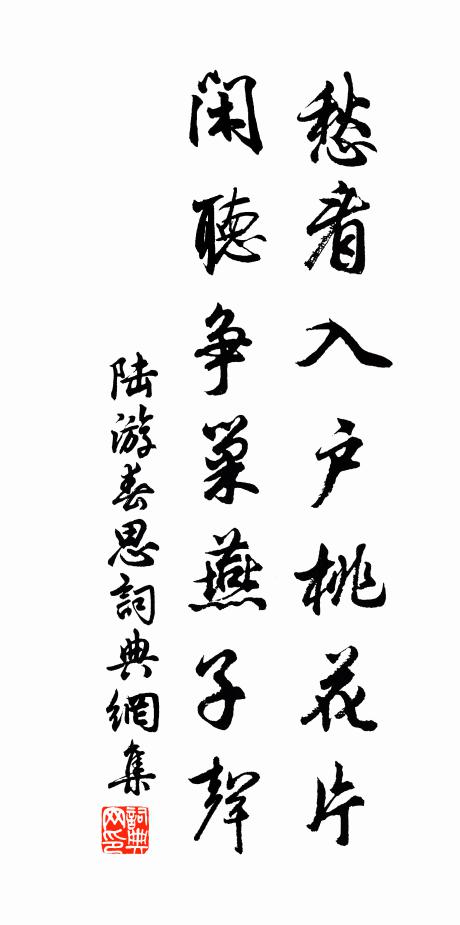 愁看入户桃花片
闲聽争巢燕子聲
陆游春思詞典網集
詞典网印